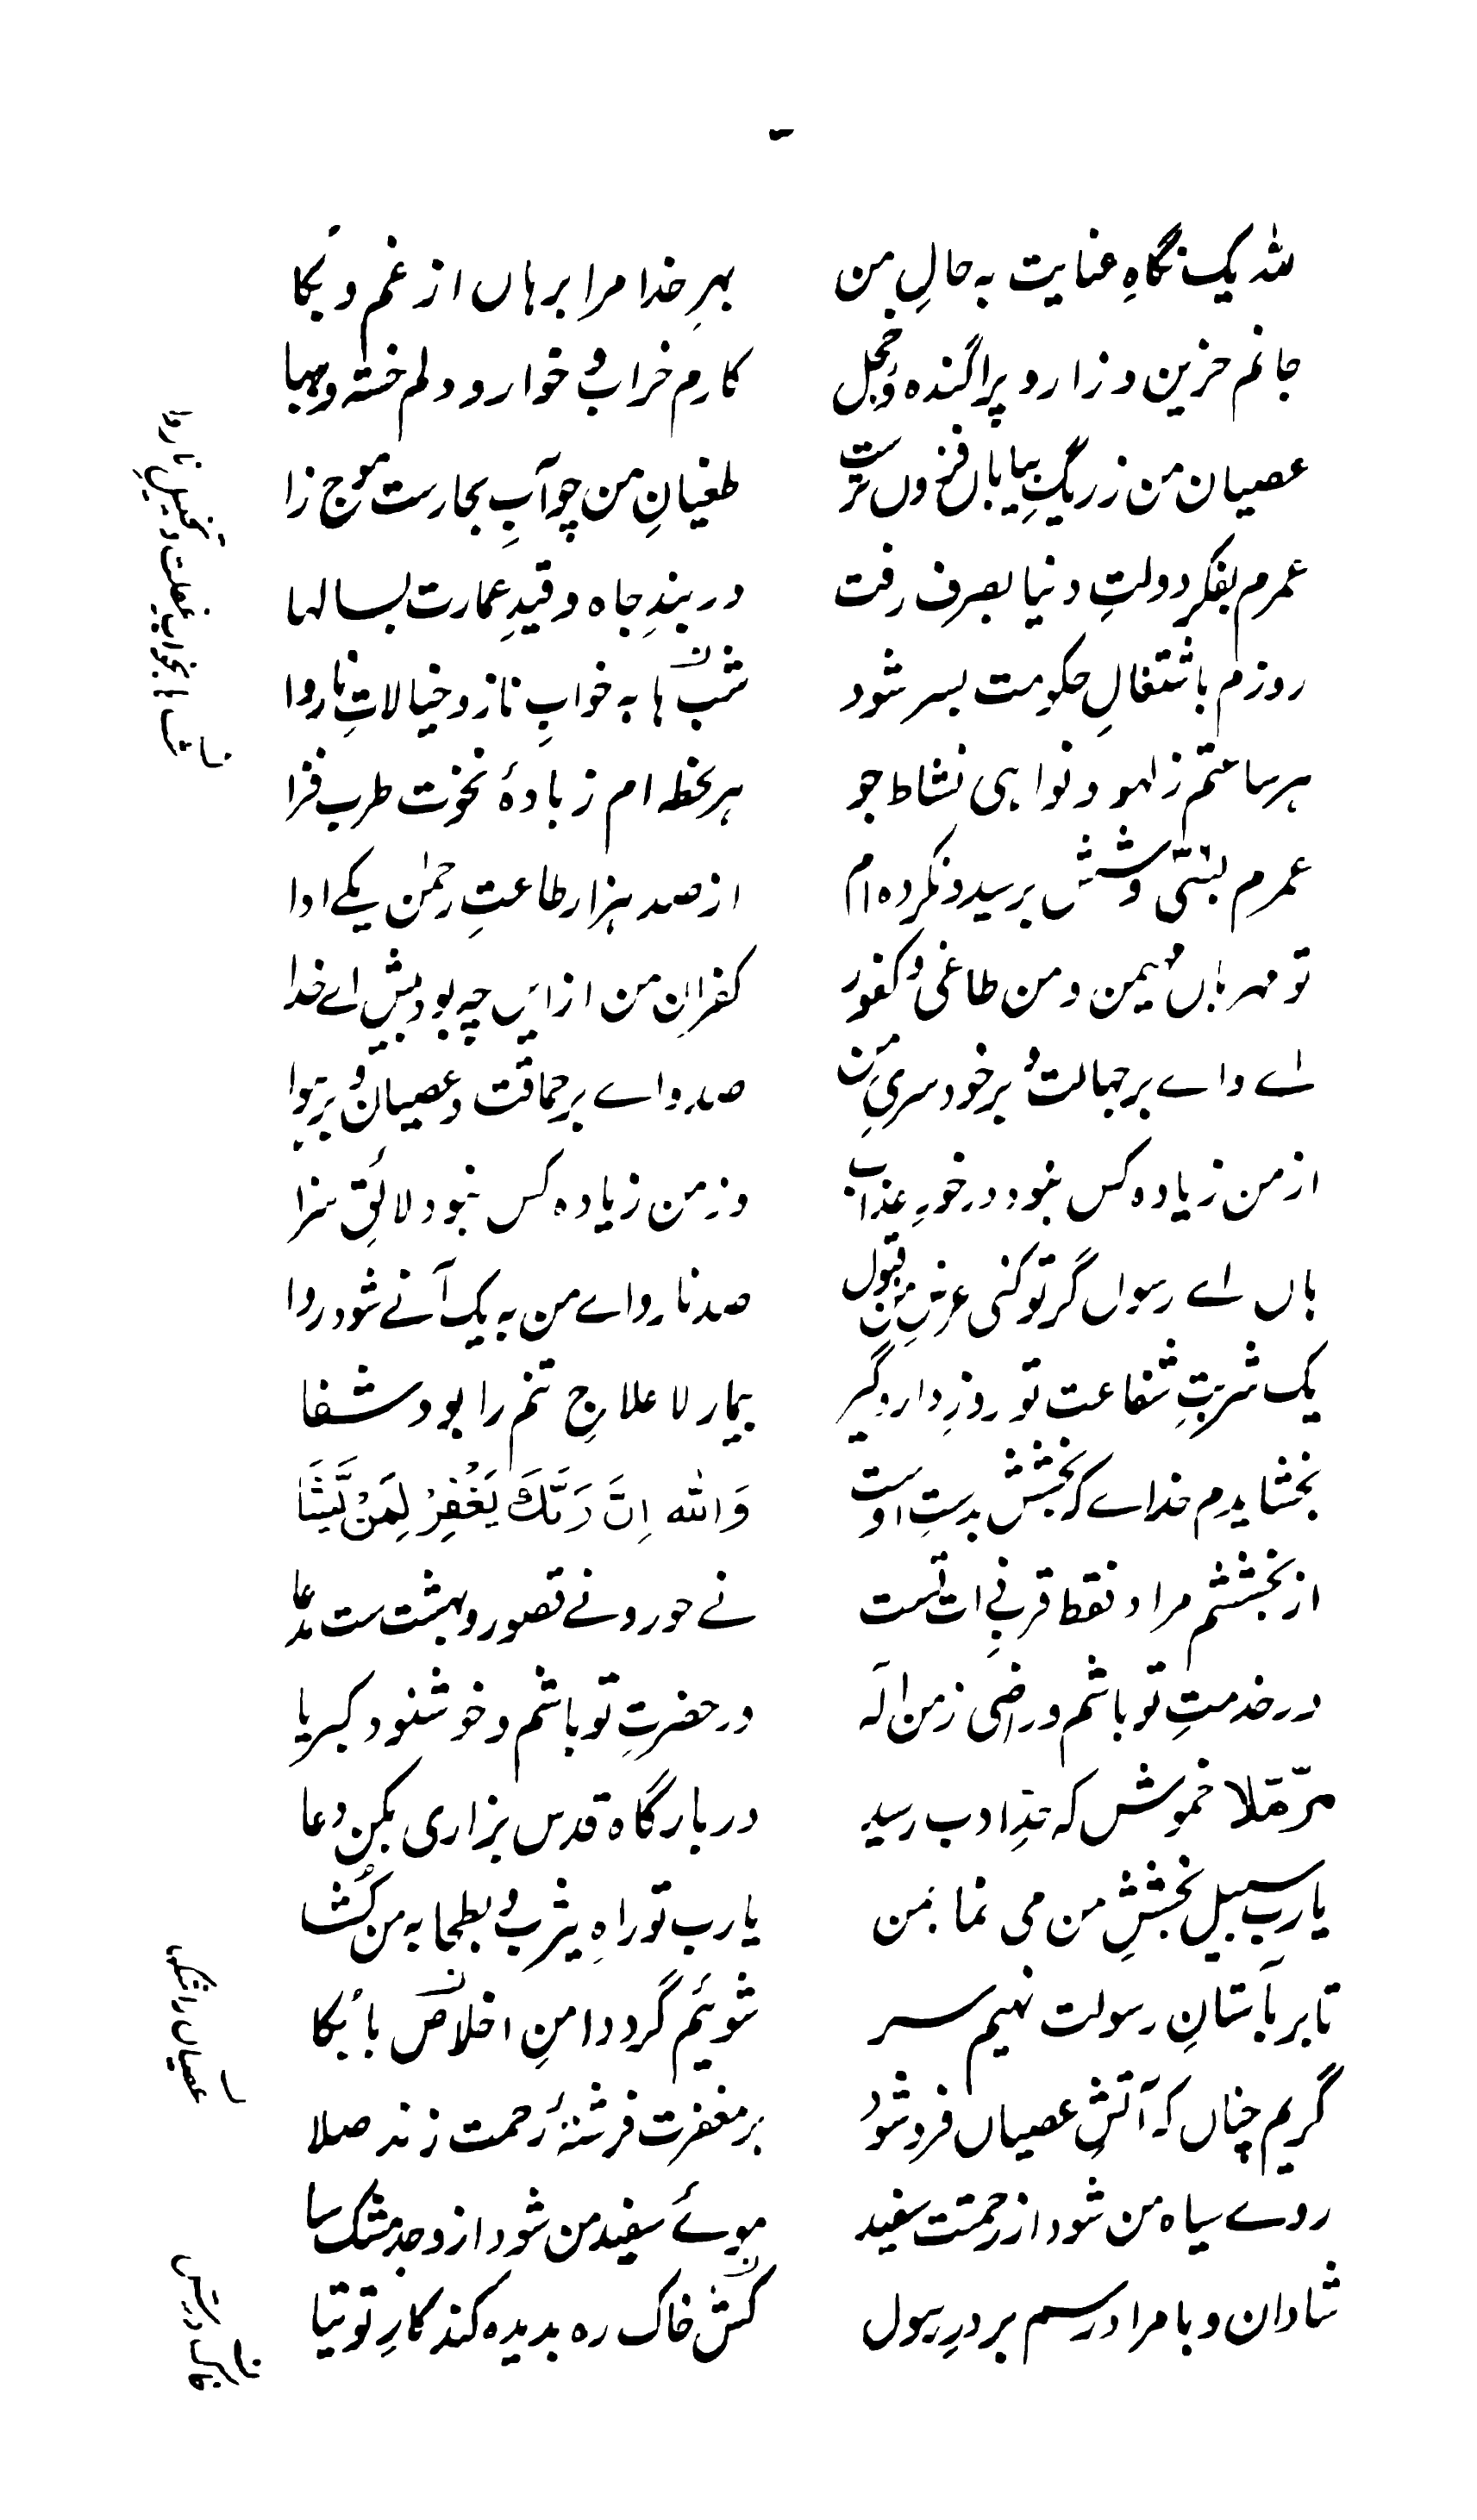 للہ یک نگاہِ عنایت بہ حالِ من
بہرِ خدا مرا برہاں از غم و بُکا
جانم حزین و زار و پراگندہ و خجل
کارم خراب و خوار و دلم خستہ و ہبا
عصیان من ز ریگِ بیاباں فزوں ترست
طغیانِ من چو آبِ بحارست موج زا
عمرم بفکرِ دولتِ دنیا بصرف رفت
در بندِ جاہ و قیدِ عمارت بسالہا
روزم باشتغالِ حکومت بسر شود
شب ہا بہ خوابِ ناز و خیالاتِ ناروا
ہر ساعتم ز لہو و نواہی نشاط جو
ہر لحظہ ام ز بادۂ نخوت طرب فزا
عمرم بشتی و شش برسید و نکردہ ام
از صد ہزار طاعتِ رحمٰن یکے ادا
تو مہرباں مہیمن و من طاغی و کفور
کفرانِ من ازایں چہ بود بیش اے خدا
اے واے بر جہالت و بر خودسریِ من
صد واے بر حماقت و عصیان و بر ہوا
از من زیادہ کس نبود در خورِ عذاب
وز من زیادہ کس نبود لائقِ سزا
ہاں اے رسول گر تو کنی عرضِ من قبول
صد نارواے من بہ یک آنے شود روا
یک شربتِ شفاعت تو روزِ دار و گیر
بیمار لا علاجِ تنم را بود شفا
بخشایدم خداے کہ بخشش بدستِ اوست
وَاللہ اِنَّ رَبَّكَ یَغْفِرُ لِمَنْ یَّشَا
از بخششم مراد فقط قربِ ذات تست
نے حور و نے قصور و بہشت ست مدعا
در خدمتِ تو باشم و راضی ز من الٰہ
در حضرتِ تو باشم و خوشنود کبریا
خموش کہ حدِّ ادب رسید
در بارگاہ قدس بزاری بکن دُعا
یارب سبیل بخششِ من می نما بمن
یارب تو راہِ یثرب و بطحا بہ من کُشا
تا بر آستانِ رسولت نہیم سر
شوئیم گرد دامنِ اخلاص با بُکا
گریم چناں کہ آتشِ عصیاں فرو شود
بر مغفرت فرشتۂ رحمت زند صلا
روے سیاہ من شود از رحمتت سفید
موئے سفید من شود از وجد مشک سا
شادان و بامراد رسم بر درِ رسول
کش خاک رہ بدیدہ کند کارِ توتیا